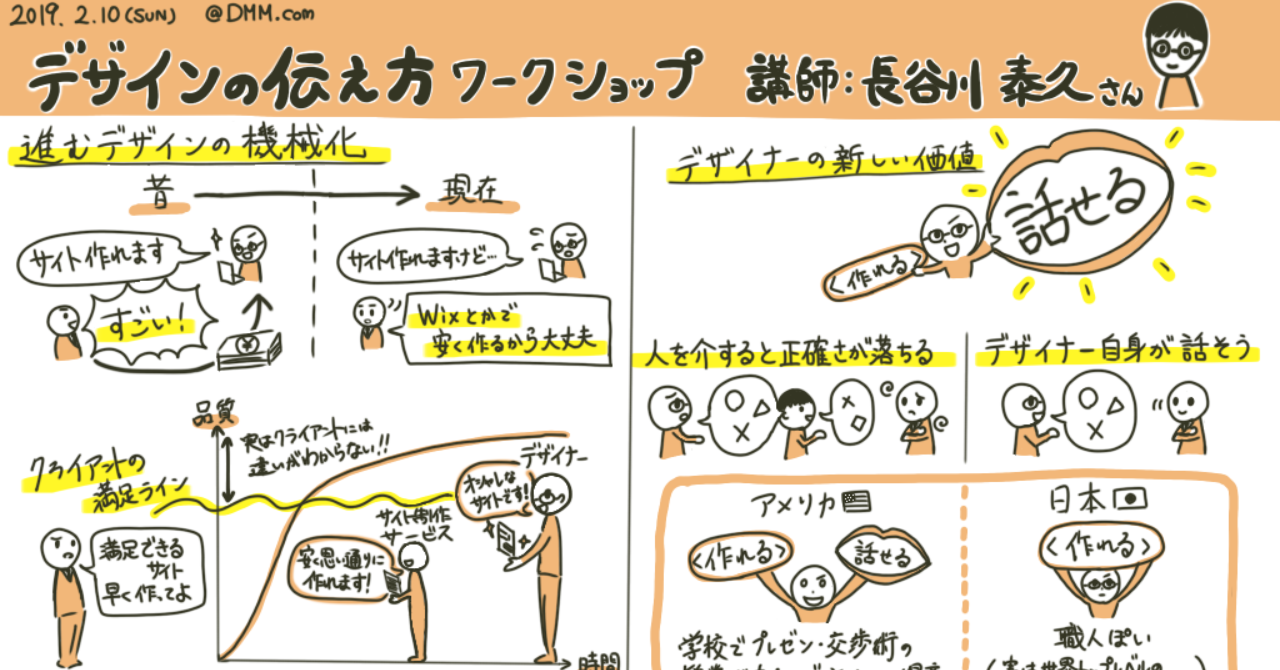 2019. 2.10(SUN) @DMM.com
デザインの伝え方 ワークショップ 講師:長谷川 泰久さん
進むデザインの機械化
昔
現在
サイト作れます
サイト作れますけど…
すごい!
¥
Wixとかで
安く作るから大丈夫
品質
実はクライアントには
違いがわからない!!
クライアントの
満足ライン
満足できる
サイト
早く作ってよ
サイト制作
サービス
安く思い通りに
作れます!
デザイナー
オシャレな
サイトです!
時間
デザイナーの新しい価値
〈作れる〉
話せる
人を介すると正確さが落ちる
デザイナー自身が話そう
アメリカ
〈作れる〉
話せる
学校でプレゼン・交渉術の
日本
〈作れる〉
職人ぽい